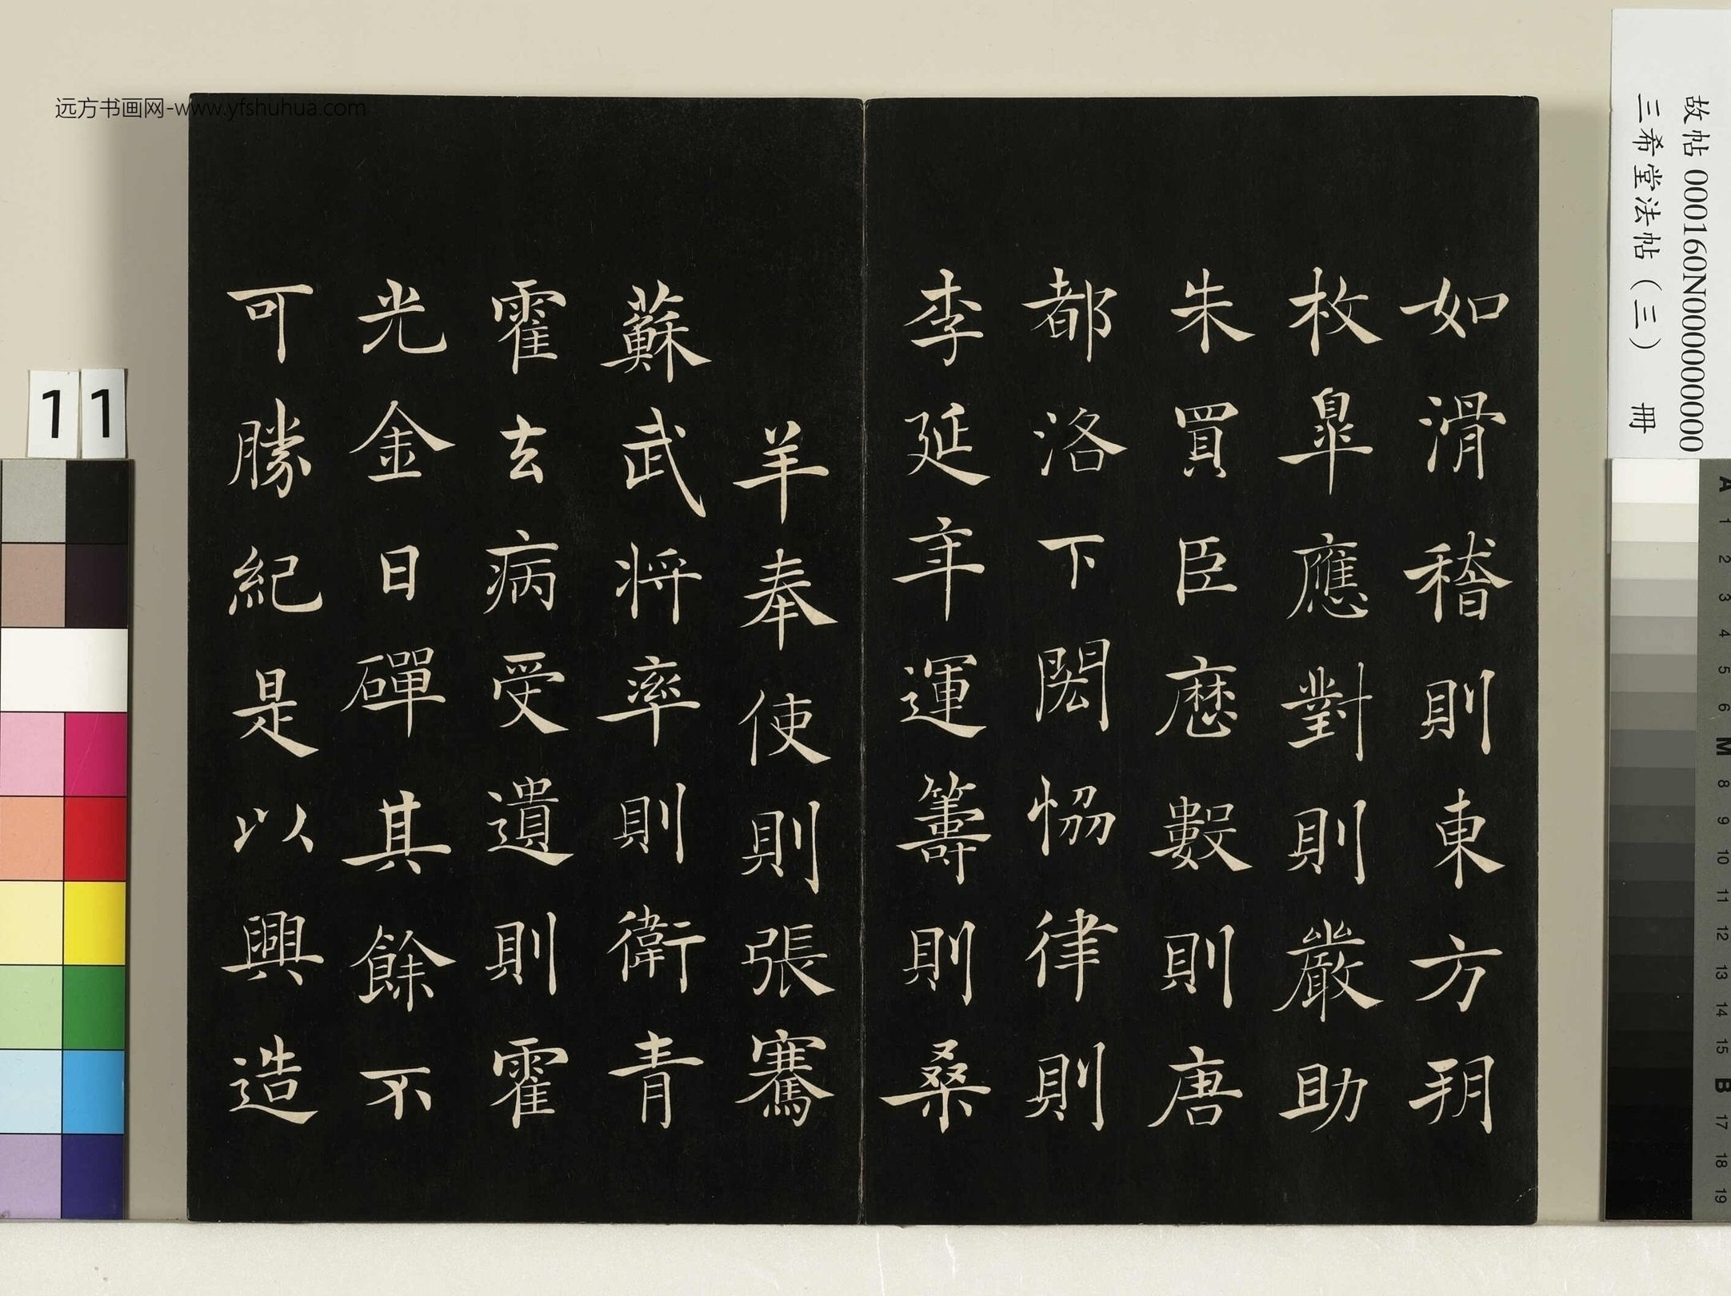 如滑稽則東方朔
枚皐應對則嚴助
朱買臣歷數則唐
都洛下閎協律則
李延年運籌則桑
羊奉使則張騫
蘇武將率則衛青
霍去病受遺則霍
光金日磾其餘不
可勝紀是以興造
故帖 000160N000000000
三希堂法帖（三） 冊
远方书画网-www.yfshuhua.com
11
A 1 2 3 4 5 6 M 8 9 10 11 12 13 14 15 B 17 18 19